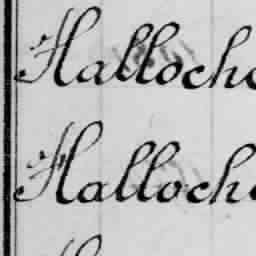 Halloche
Halloche